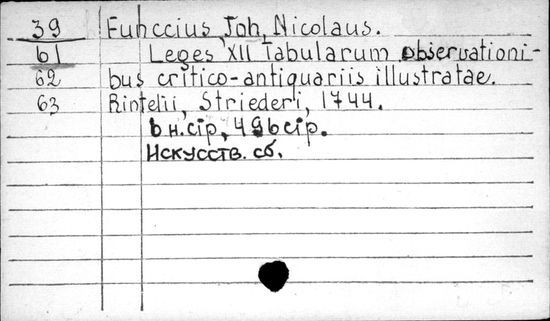 39 Funccius, Joh. Nicolaus.
61 Leges XII Tabularum observationi-
62 bus critico-antiquariis illustratae.
63 Rintelii, Striederi, 1744.
6 н.стр., 496 стр.
Искусств. сб.